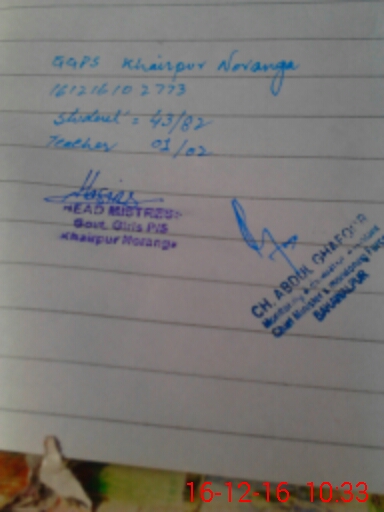 GGPS Khairpur Noranga
16121610 2773
Student = 43/82
Teacher 01/02
HEAD MISTRESS
Govt. Girls P/S
Khairpur Noranga
CH. ABDUL GHAFOUR
Monitoring
Chief Minister's Monitoring Force
BAHAWALPUR
16-12-16 10:33